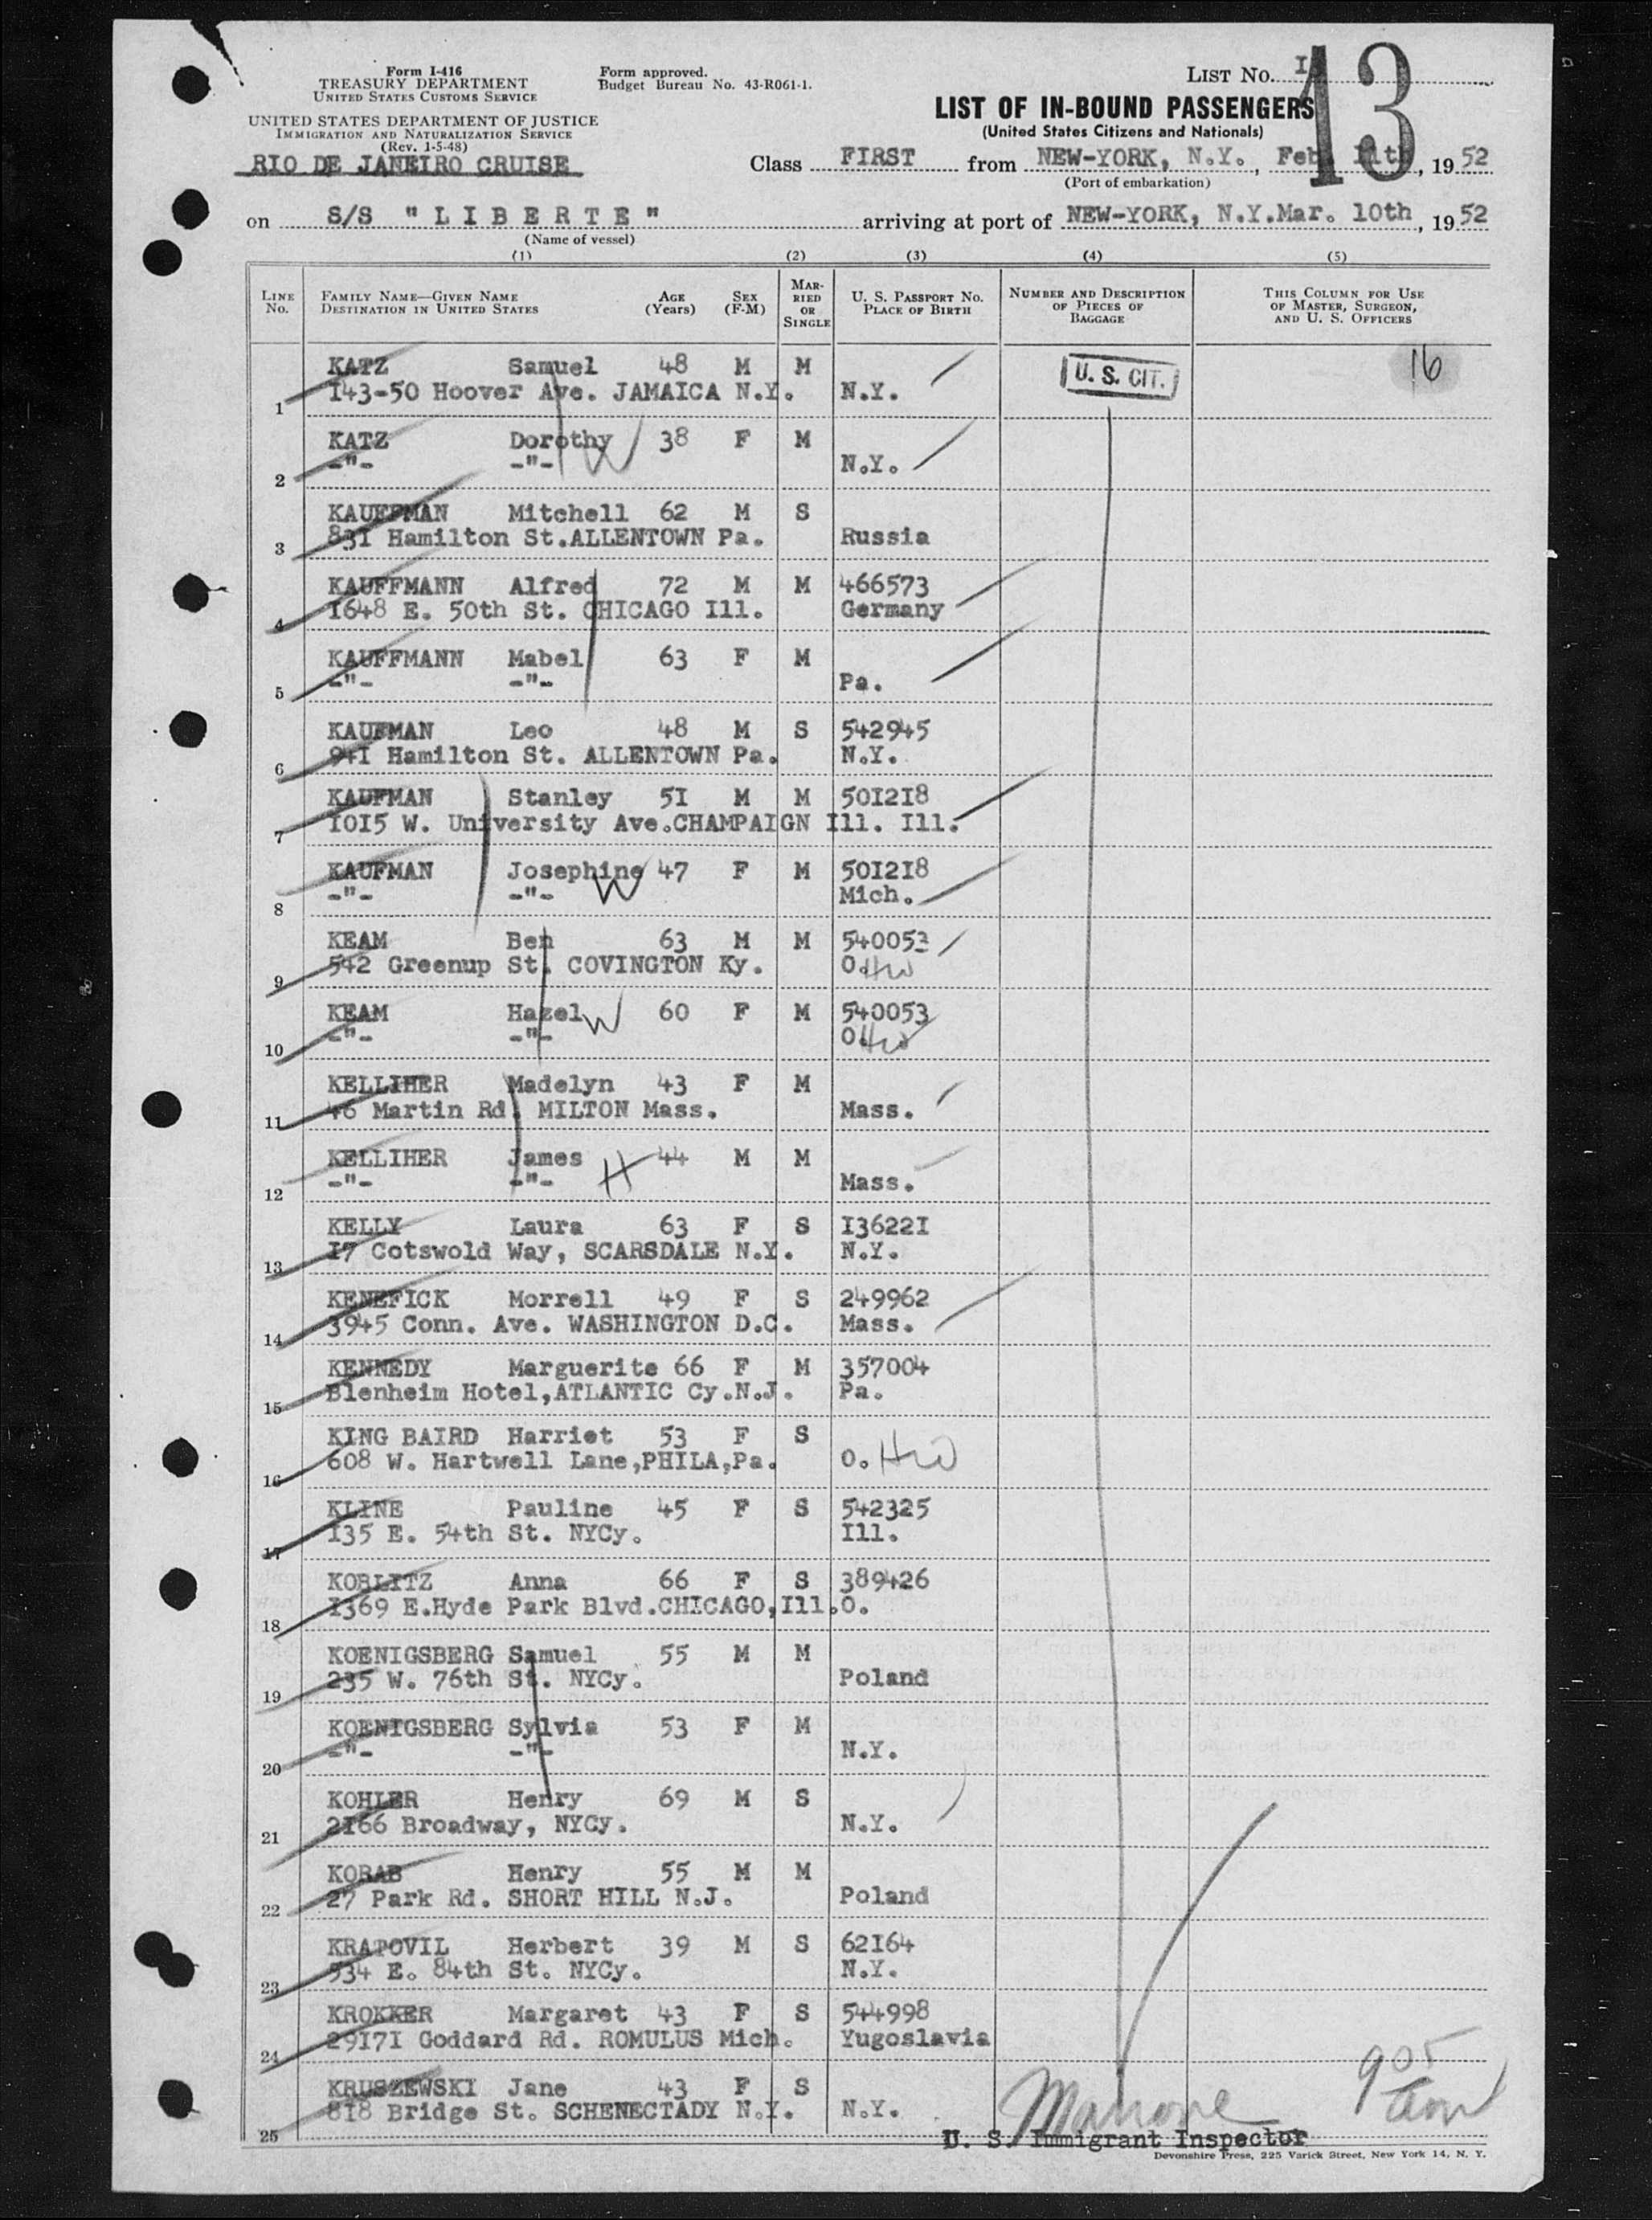 Form I-416
TREASURY DEPARTMENT
UNITED STATES CUSTOMS SERVICE
UNITED STATES DEPARTMENT OF JUSTICE
IMMIGRATION AND NATURALIZATION SERVICE
(Rev. 1-5-48)
RIO DE JANEIRO CRUISE
Form approved.
Budget Bureau No. 43-R061-1.
LIST NO. I
13
LIST OF IN-BOUND PASSENGERS
(United States Citizens and Nationals)
Class FIRST from NEW-YORK, N.Y., Feb. 11th, 1952
(Port of embarkation)
on S/S "LIBERTE" arriving at port of NEW-YORK, N.Y. Mar. 10th, 1952
(Name of vessel)
(1) (2) (3) (4) (5)
LINE NO. FAMILY NAME—GIVEN NAME DESTINATION IN UNITED STATES AGE (Years) SEX (F-M) MARRIED OR SINGLE U. S. PASSPORT NO. PLACE OF BIRTH NUMBER AND DESCRIPTION OF PIECES OF BAGGAGE THIS COLUMN FOR USE OF MASTER, SURGEON, AND U. S. OFFICERS
KATZ Samuel 48 M M U. S. CIT. 16
1 143-50 Hoover Ave. JAMAICA N.Y. N.Y.
KATZ Dorothy W 38 F M
2 -"- -"- N.Y.
KAUFFMAN Mitchell 62 M S
3 831 Hamilton St.ALLENTOWN Pa. Russia
KAUFFMANN Alfred 72 M M 466573
4 1648 E. 50th St. CHICAGO Ill. Germany
KAUFFMANN Mabel 63 F M
5 -"- -"- Pa.
KAUFMAN Leo 48 M S 542945
6 941 Hamilton St. ALLENTOWN Pa. N.Y.
KAUFMAN Stanley 51 M M 501218
7 1015 W. University Ave.CHAMPAIGN Ill. Ill.
KAUFMAN Josephine W 47 F M 501218
8 -"- -"- Mich.
KEAM Ben 63 M M 540053
9 542 Greenup St. COVINGTON Ky. O.
KEAM Hazel W 60 F M 540053
10 -"- -"- O.
KELLIHER Madelyn 43 F M
11 46 Martin Rd. MILTON Mass. Mass.
KELLIHER James H 44 M M
12 -"- -"- Mass.
KELLY Laura 63 F S 136221
13 17 Cotswold Way, SCARSDALE N.Y. N.Y.
KENEFICK Morrell 49 F S 249962
14 3945 Conn. Ave. WASHINGTON D.C. Mass.
KENNEDY Marguerite 66 F M 357004
15 Blenheim Hotel,ATLANTIC Cy.N.J. Pa.
KING BAIRD Harriet 53 F S
16 608 W. Hartwell Lane,PHILA,Pa. O.
KLINE Pauline 45 F S 542325
17 135 E. 54th St. NYCy. Ill.
KOBLITZ Anna 66 F S 389426
18 1369 E.Hyde Park Blvd.CHICAGO,Ill.O.
KOENIGSBERG Samuel 55 M M
19 235 W. 76th St. NYCy. Poland
KOENIGSBERG Sylvia 53 F M
20 -"- -"- N.Y.
KOHLER Henry 69 M S
21 2166 Broadway, NYCy. N.Y.
KORAB Henry 55 M M
22 27 Park Rd. SHORT HILL N.J. Poland
KRATOVIL Herbert 39 M S 62164
23 534 E. 84th St. NYCy. N.Y.
KROKKER Margaret 43 F S 544998
24 29171 Goddard Rd. ROMULUS Mich. Yugoslavia
KRUSZEWSKI Jane 43 F S
25 818 Bridge St. SCHENECTADY N.Y. N.Y.
Manone 905
U. S. Immigrant Inspector
Devonshire Press, 225 Varick Street, New York 14, N. Y.